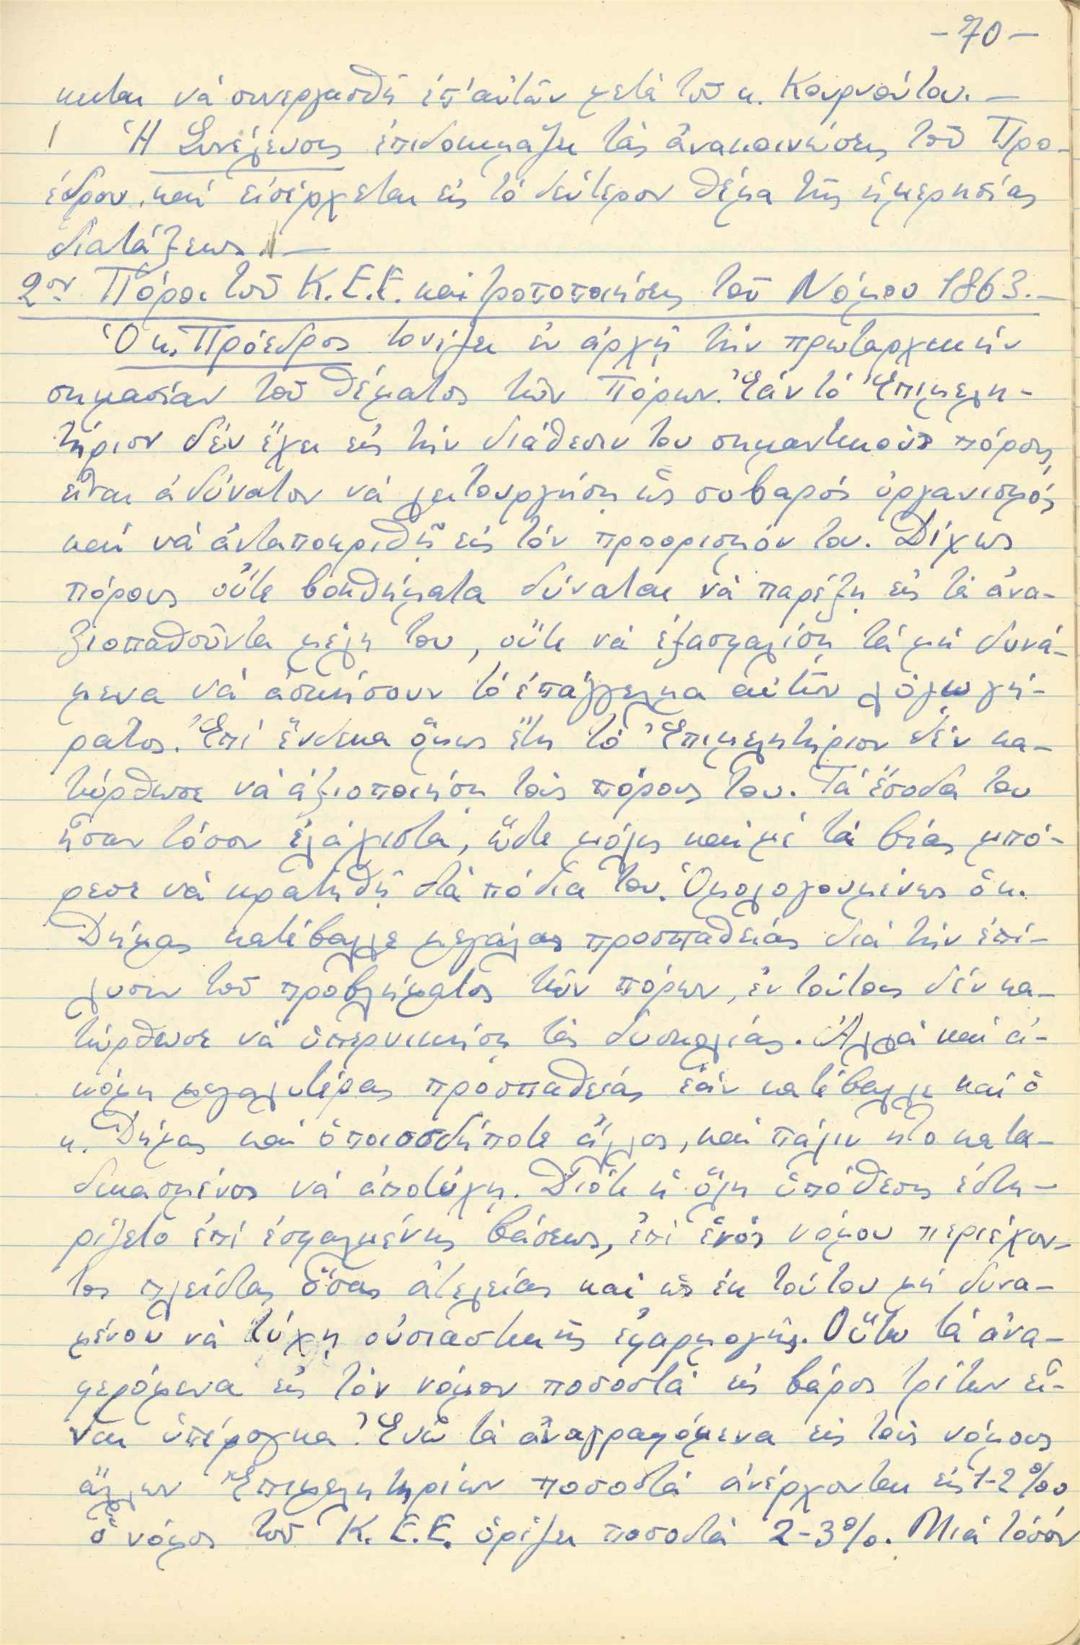 -70-
κεται νά συνεργασθῇ ἐπ' αὐτῶν μετά τοῦ κ. Κουρνούτου.-
Ἡ Συνέλευσις ἐπιδοκιμάζει τάς ἀνακοινώσεις τοῦ Προ-
έδρου καί εἰσέρχεται εἰς τό δεύτερον θέμα τῆς ἡμερησίας
διατάξεως.-
2ον Πόροι τοῦ Κ.Ε.Ε. καί τροποποιήσεις τοῦ Νόμου 1863.-
Ὁ κ. Πρόεδρος τονίζει ἐν ἀρχῇ τήν πρωταρχικήν
σημασίαν τοῦ θέματος τῶν Πόρων. Ἐάν τό Ἐπιμελη-
τήριον δέν ἔχει εἰς τήν διάθεσιν του σημαντικούς πόρους,
εἶναι ἀδύνατον νά λειτουργήσῃ ὡς σοβαρός ὀργανισμός
καί νά ἀνταποκριθῇ εἰς τόν προορισμόν του. Δίχως
πόρους οὔτε βοηθήματα δύναται νά παρέξῃ εἰς τά ἀνα-
ξιοπαθοῦντα μέλη του, οὔτε νά ἐξασφαλίσῃ τά μή δυνά-
μενα νά ἀσκήσουν τό ἐπάγγελμα αὐτῶν λόγω γή-
ρατος. Ἐπί ἕνδεκα ὅμως ἔτη τό Ἐπιμελητήριον δέν κα-
τώρθωσε νά ἀξιοποιήσῃ τούς πόρους του. Τά ἔσοδά του
ἦσαν τόσον ἐλάχιστα, ὥστε μόλις καί μέ τά βίας μπό-
ρεσε νά κρατηθῇ στά πόδια του. Ὁμολογουμένως ὁ κ.
Δήμας κατέβαλλε μεγάλας προσπαθείας διά τήν ἐπί-
λυσιν τοῦ προβλήματος τῶν πόρων, ἐν τούτοις δέν κα-
τώρθωσε νά ὑπερνικήσῃ τάς δυσκολίας. Ἀλλά καί ἀ-
κόμη μεγαλυτέρας προσπαθείας ἐάν κατέβαλλε καί ὁ
κ. Δήμας καί ὁποιοσδήποτε ἄλλος, καί πάλιν ἦτο κατα-
δικασμένος νά ἀποτύχῃ. Διότι ἡ ὅλη ὑπόθεσις ἐστη-
ρίζετο ἐπί ἐσφαλμένης βάσεως, ἐπί ἑνός νόμου περιέχον-
τος πλείστας ὅσας ἀτελείας καί ὡς ἐκ τούτου μή δυνα-
μένου νά τύχῃ οὐσιαστικῆς ἐφαρμογῆς. Οὕτω τά ἀνα-
φερόμενα εἰς τόν νόμον ποσοστά εἰς βάρος τρίτων εἶ-
ναι ὑπέρογκα. Ἐνῶ τά ἀναγραφόμενα εἰς τούς νόμους
ἄλλων Ἐπιμελητηρίων ποσοστά ἀνέρχονται εἰς 1-2‰
ὁ νόμος τοῦ Κ.Ε.Ε. ὁρίζει ποσοστά 2-3%. Μιά τόσον